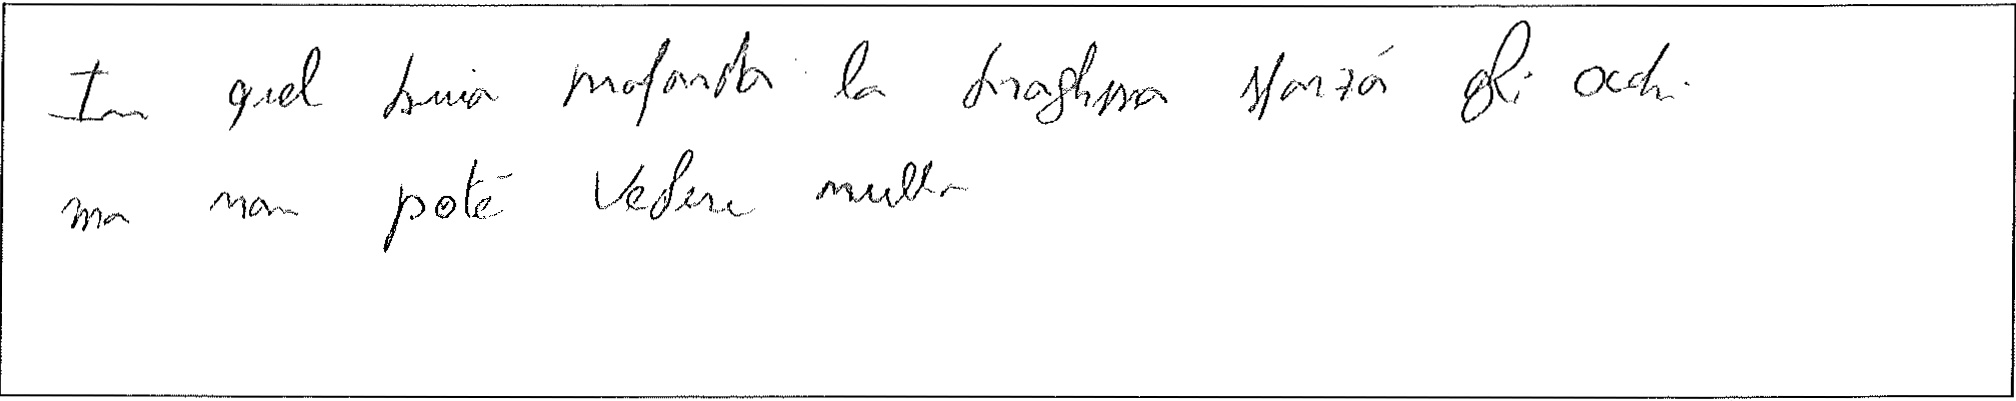 In quel buio profondo la draghessa sforzá gli occhi
ma non poté vedere nulla